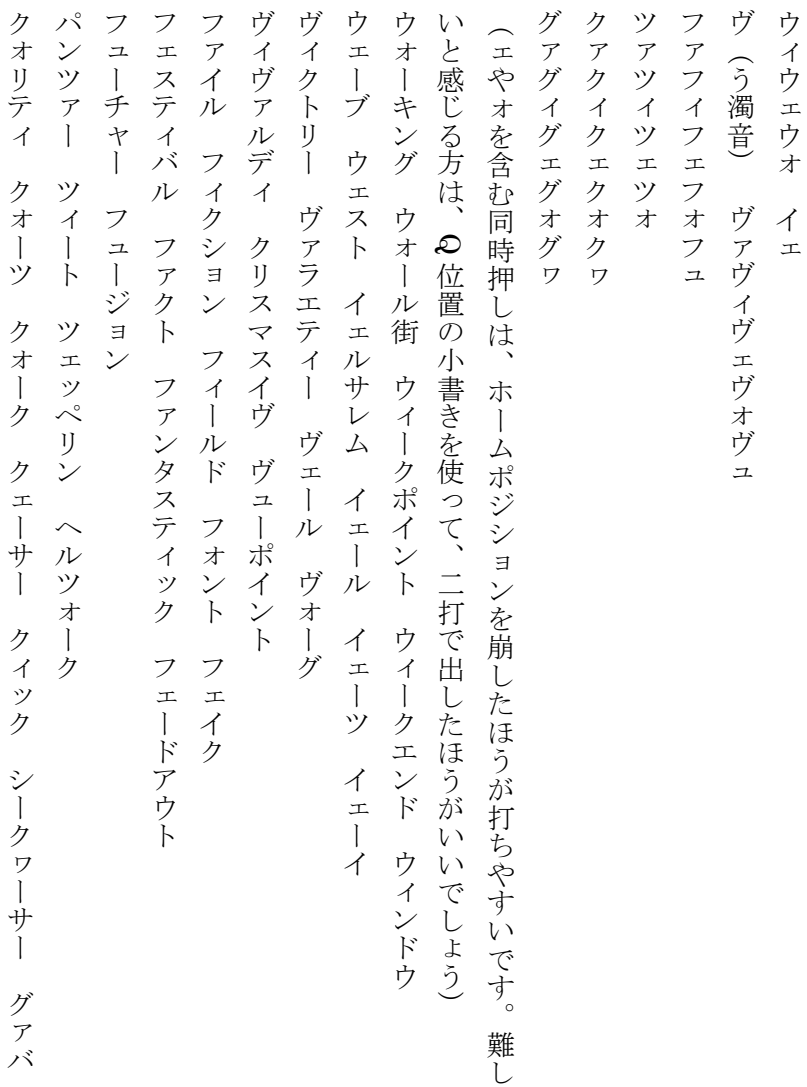 ウィウェウォ　イェ
ヴ（う濁音）　ヴァヴィヴェヴォヴュ
ファフィフェフォフュ
ツァツィツェツォ
クァクィクェクォクヮ
グァグィグェグォグヮ
（ェやォを含む同時押しは、ホームポジションを崩したほうが打ちやすいです。難し
いと感じる方は、Q位置の小書きを使って、二打で出したほうがいいでしょう）
ウォーキング　ウォール街　ウィークポイント　ウィークエンド　ウィンドウ
ウェーブ　ウェスト　イェルサレム　イェール　イェーツ　イェーイ
ヴィクトリー　ヴァラエティー　ヴェール　ヴォーグ
ヴィヴァルディ　クリスマスイヴ　ヴューポイント
ファイル　フィクション　フィールド　フォント　フェイク
フェスティバル　ファクト　ファンタスティック　フェードアウト
フューチャー　フュージョン
パンツァー　ツィート　ツェッペリン　ヘルツォーク
クォリティ　クォーツ　クォーク　クェーサー　クィック　シークヮーサー　グァバ